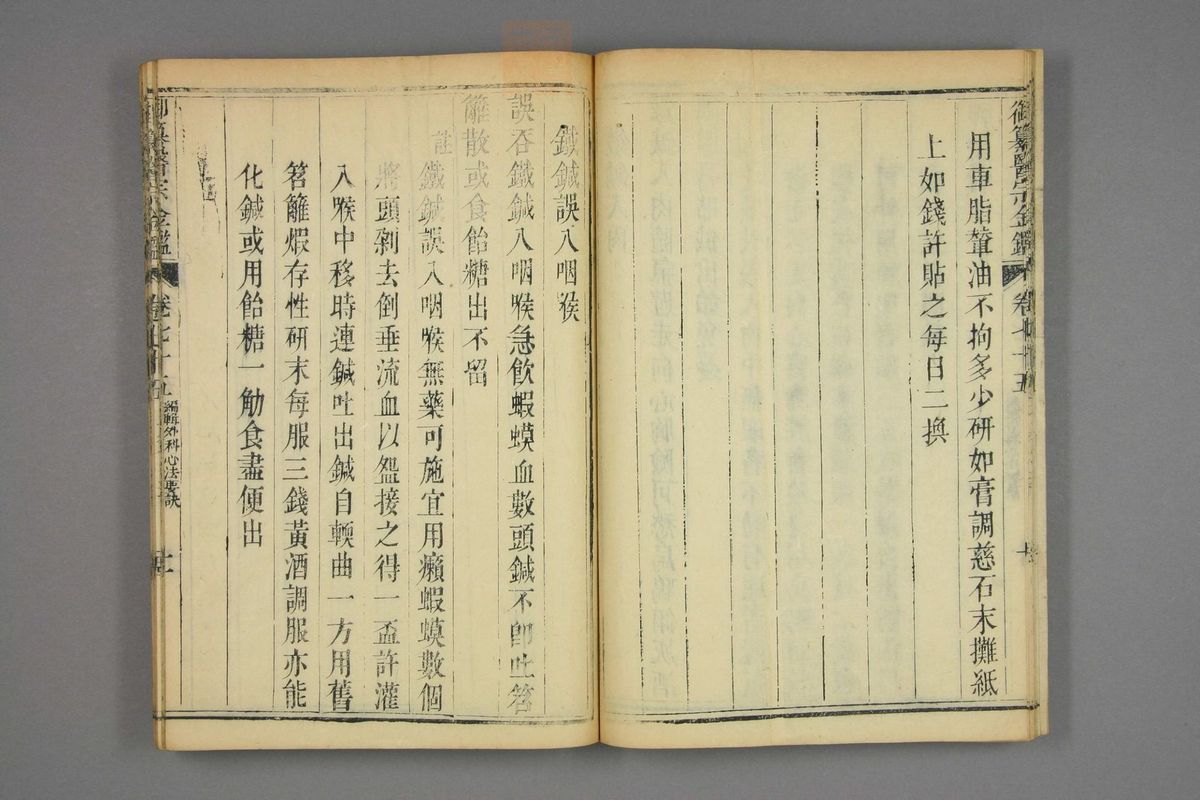 御纂醫宗金鑑
卷七十五
用車脂輂油不拘多少研如膏調慈石末攤紙
上如錢許貼之每日二換
鐵鍼誤入咽喉
誤吞鐵鍼入咽喉急飲蝦蟆血數頭鍼不卽吐笤
籬散或食飴糖出不留
註 鐵鍼誤入咽喉無藥可施宜用癩蝦蟆數個
將頭剁去倒垂流血以盌接之得一盃許灌
入喉中移時連鍼吐出鍼自輭曲一方用舊
笤籬煆存性研末每服三錢黃酒調服亦能
化鍼或用飴糖一觔食盡便出
御纂醫宗金鑑
卷七十五
編輯外科心法要訣